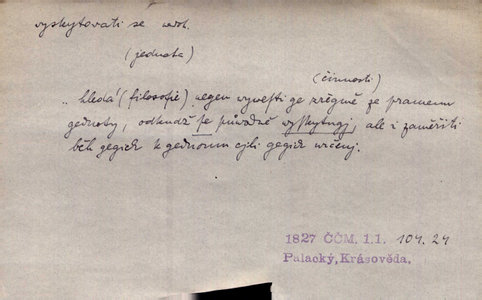 vyskytovati se nedok.
(jednota)
(činnosti)
„ hledá (filosofie) negen vywésti ge zřegmě ze pramenu
gednoty, odkudž se půwodně wyskytugj, ale i zaměřiti
běh gegich k gednomu cjli gegich určenj.
1827 ČČM. 1.1. 104.24
Palacký, Krásověda.